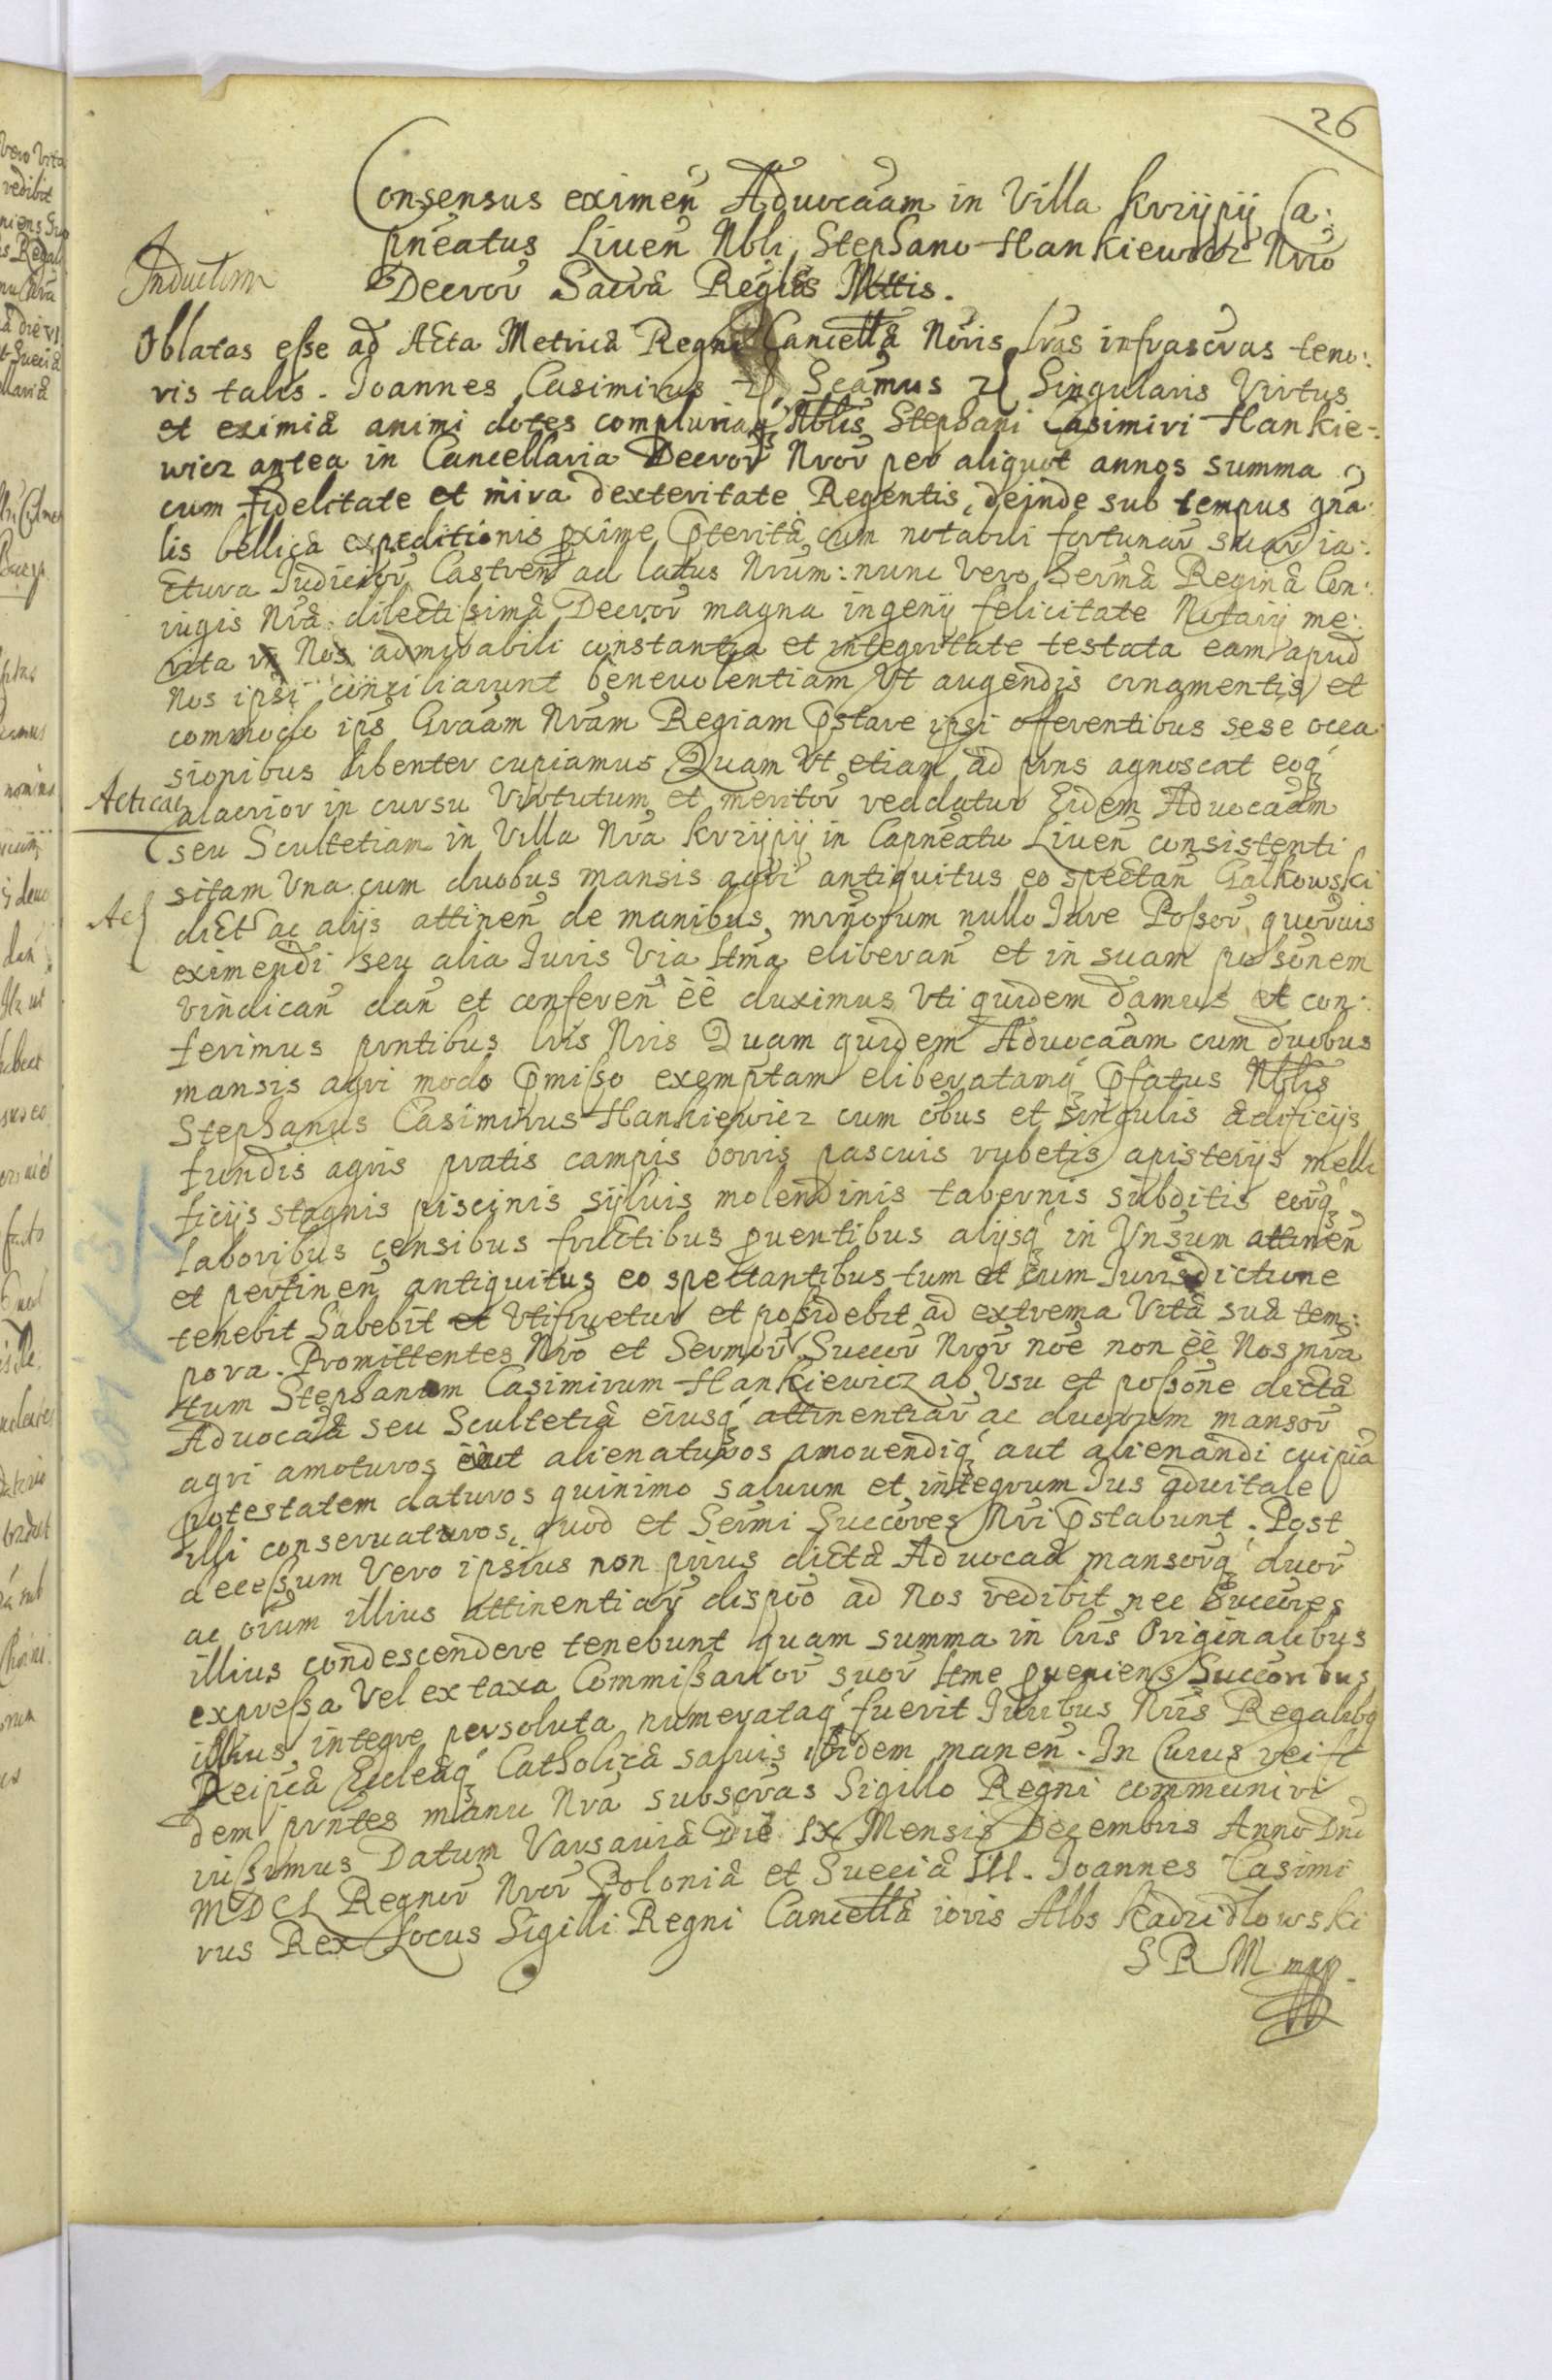 26
Consensus eximeñ Aduocaãm in Villa Krijpij Ca:
pneatus Liueñ Nbli Stephano Hankiewicz Nrio
Inductum
Decror Sacræ Regiæs Mttis.
Oblatas esse ad Acta Metricæ Regni Cancellæ Noris lras infrascras teno:
ris talis. Joannes Casimirus Scamus Singularis Virtus
et eximiæ animi dotes compluriaq Nblis Stephani Casimiri Hankie-
wicz antea in Cancellaria Decror Nror per aliquot annos summa
cum fidelitate et mira dexteritate Regentis, deinde sub tempus gna
lis bellicæ expeditionis pxime pteritæ cum notabili fortunar suar ia:
ctura Judicior Castreñ ad latus Nrum: nunc vero Sermæ Reginæ Con:
iugis Nræ dilectissimæ Decror magna ingenij felicitate Notarij me:
rita in Nos admirabili constantia et integritate testata eam apud
Nos ipsi conziliarunt beneuolentiam Vt augendis ornamentis et
commodo ips Graãm Nram Regiam pstare ipsi offerentibus sese occa
sionibus libenter cupiamus Quam Vt etiam ad prns agnoscat eoq
Acticat
alacrior in cursu Virtutum et meritor reddatur Eidem Aduocaãm
seu Scultetiam in Villa Nra Krzijpij in Capneatu Liueñ consistenti
sitam Vna cum duobus mansis agri antiquitus eo spectañ Galkowski
Ac
dict ac alijs attineñ de manibus minorum nullo Jure Possor quoruis
eximendi seu alia Juris Via ltma eliberañ et in suam possonem
vindicañ dañ et confereñ ẽẽ duximus Vti quidem damus et con:
ferimus prntibus lris Nris Quam quidem Aduocaãm cum duobus
mansis agri modo pmisso exemptam eliberatamq pfatus Nblis
Stephanus Casimirus Hankiewicz cum õbus et singulis ædificijs
fundis agris pratis campis borris pascuis rubetis apisterijs melli
ficijs stagnis piscinis sijluis molendinis tabernis subditis eorq
laboribus censibus fructibus puentibus alijsq in Vnsum attineñ
et pertineñ antiquitus eo spectantibus tum et cum Jurisdictione
tenebit habebit et Vtifruetur et possidebit ad extrema Vitæ suæ tem:
pora. Promittentes Nro et Sermor Succor Nror noẽ non ẽẽ Nos mra
tum Stephanum Casimirum Hankiewicz ab Vsu et possone dictæ
Aduocaæ seu Scultetiæ eiusq attinentiar ac duorum mansor
agri amoturos aut alienaturos amouendiq aut alienandi cuipia
potestatem daturos quinimo saluum et integrum Jus aduitale
illi conseruaturos, quod et Sermi Succores Nri pstabunt. Post
decessum Vero ipsius non prius dictæ Aduocaæ mansorq duor
ac oium illius attinentiar dispoõ ad Nos redibit nec Succores
illius condescendere tenebunt quam summa in lris Originalibus
expressa Vel ex taxa Commissarior suor ltme pueniens Succoribus
illius integre persoluta numerataq fuerit Juribus Nris Regalibq
Reipcæ Eccleæq Catholicæ saluis ibidem maneñ. In Cuius rei f
dem prntes manu Nra subscras Sigillo Regni communiri
iussimus Datum Varsauiæ Die IX Mensis Decembris Anno Dni
MDCL Regnor Nror Poloniæ et Sueciæ III. Joannes Casimi
rus Rex Locus Sigilli Regni Cancellæ ioris Albs Kadzidlowski
S R M mpp